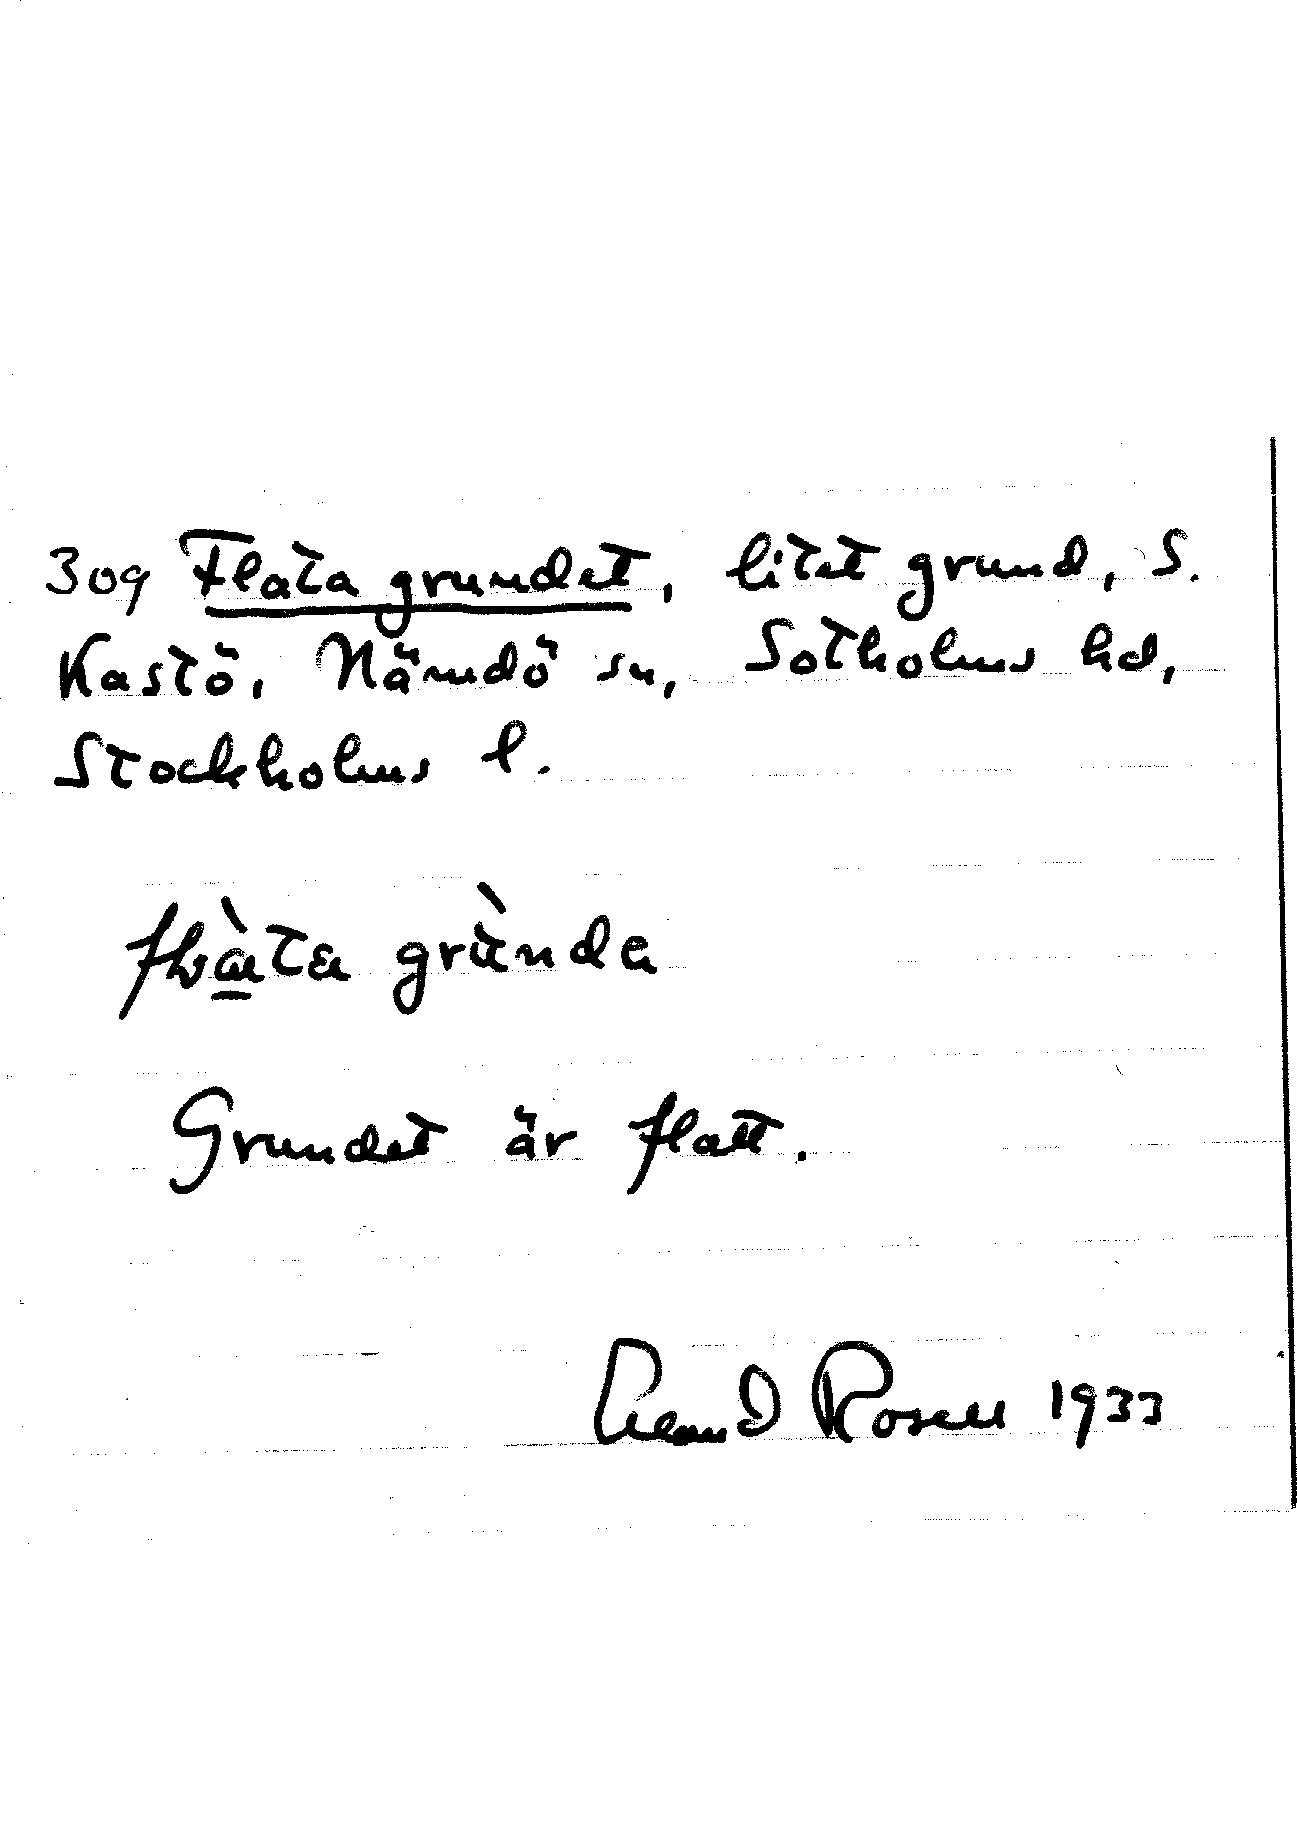 309 Flata grundet, litet grund, S.
Kastö, Nämdö sn, Sotholms hd,
Stockholms l.
grùnda
Grundet är flatt.
D Rosell 1933